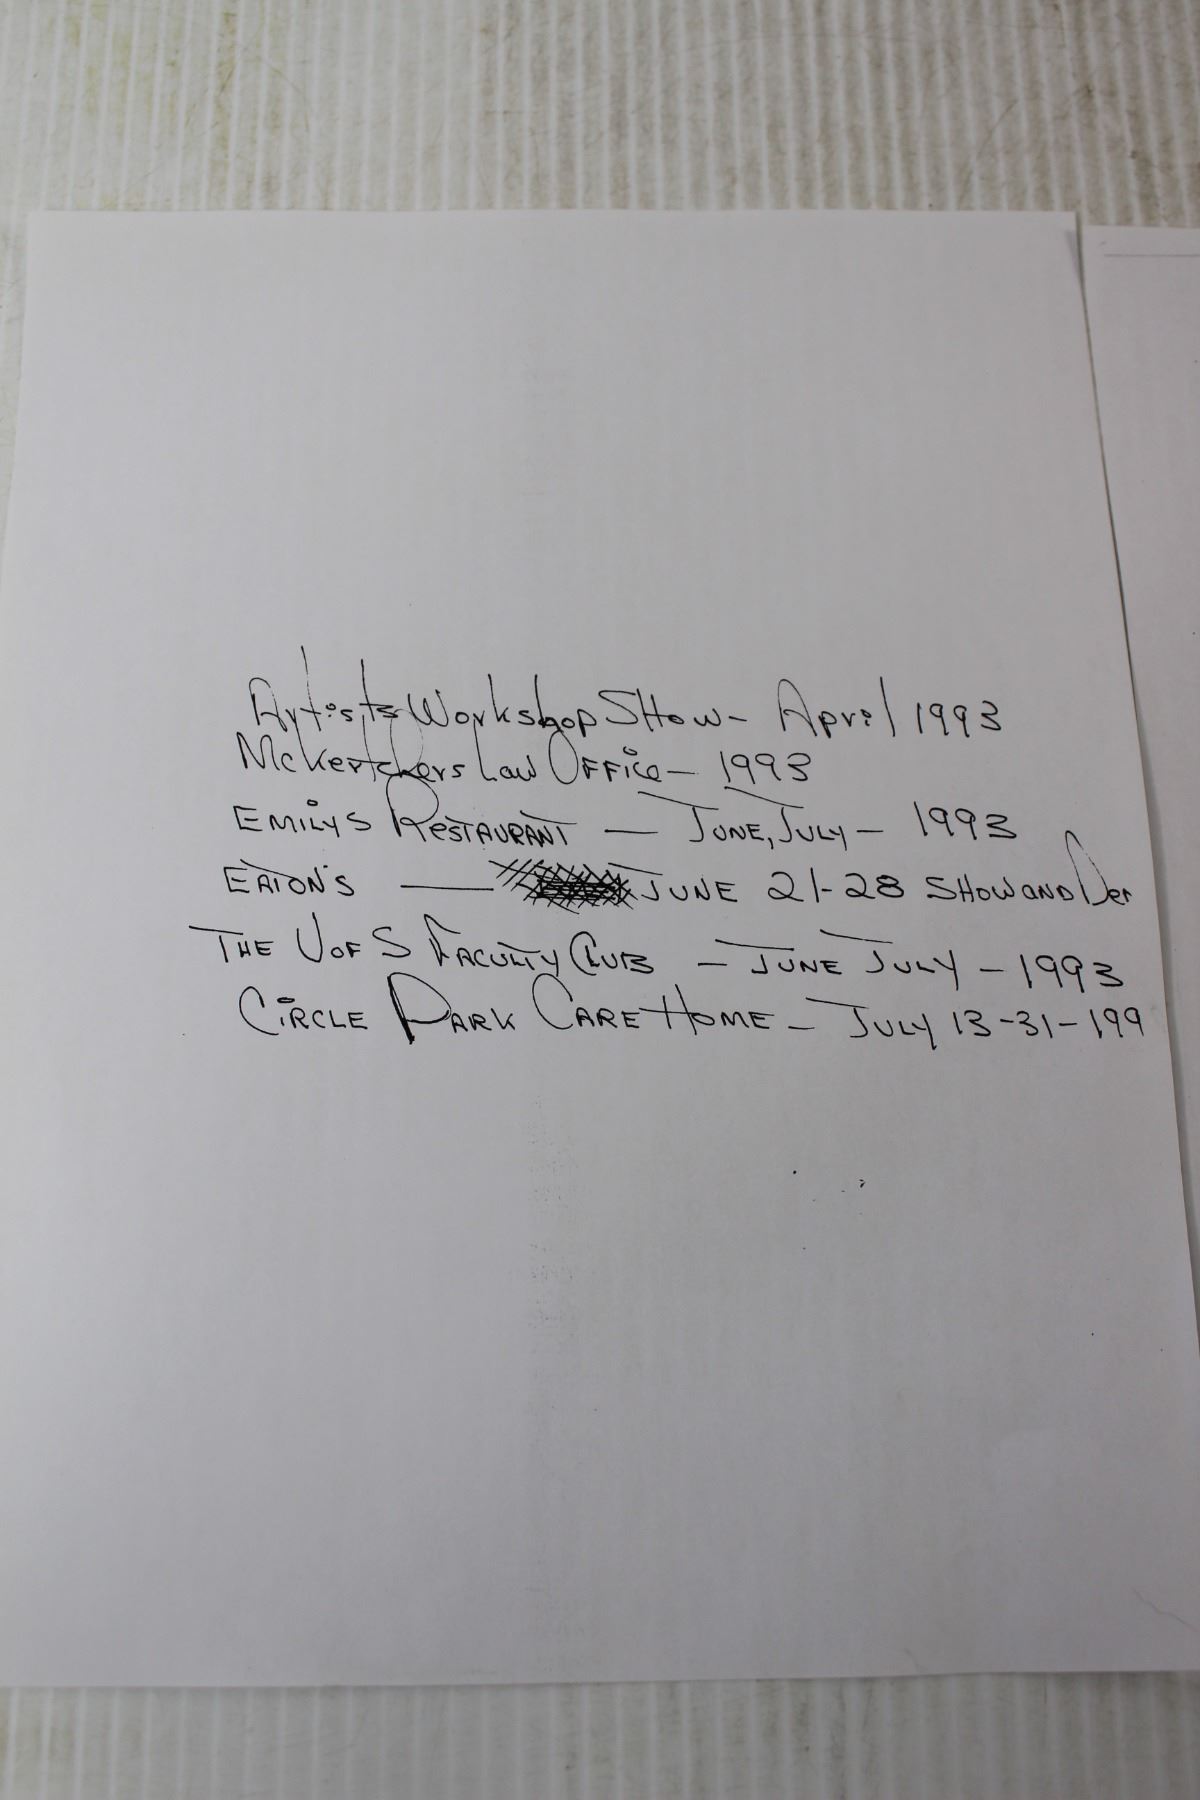 Artists Workshop Show - April 1993
McKertchers Law Office - 1993
Emilys Restaurant — June, July - 1993
Eaton's — June 21-28 Show and Dem
The U of S Faculty Club - June July - 1993
Circle Park Care Home - July 13-31-199